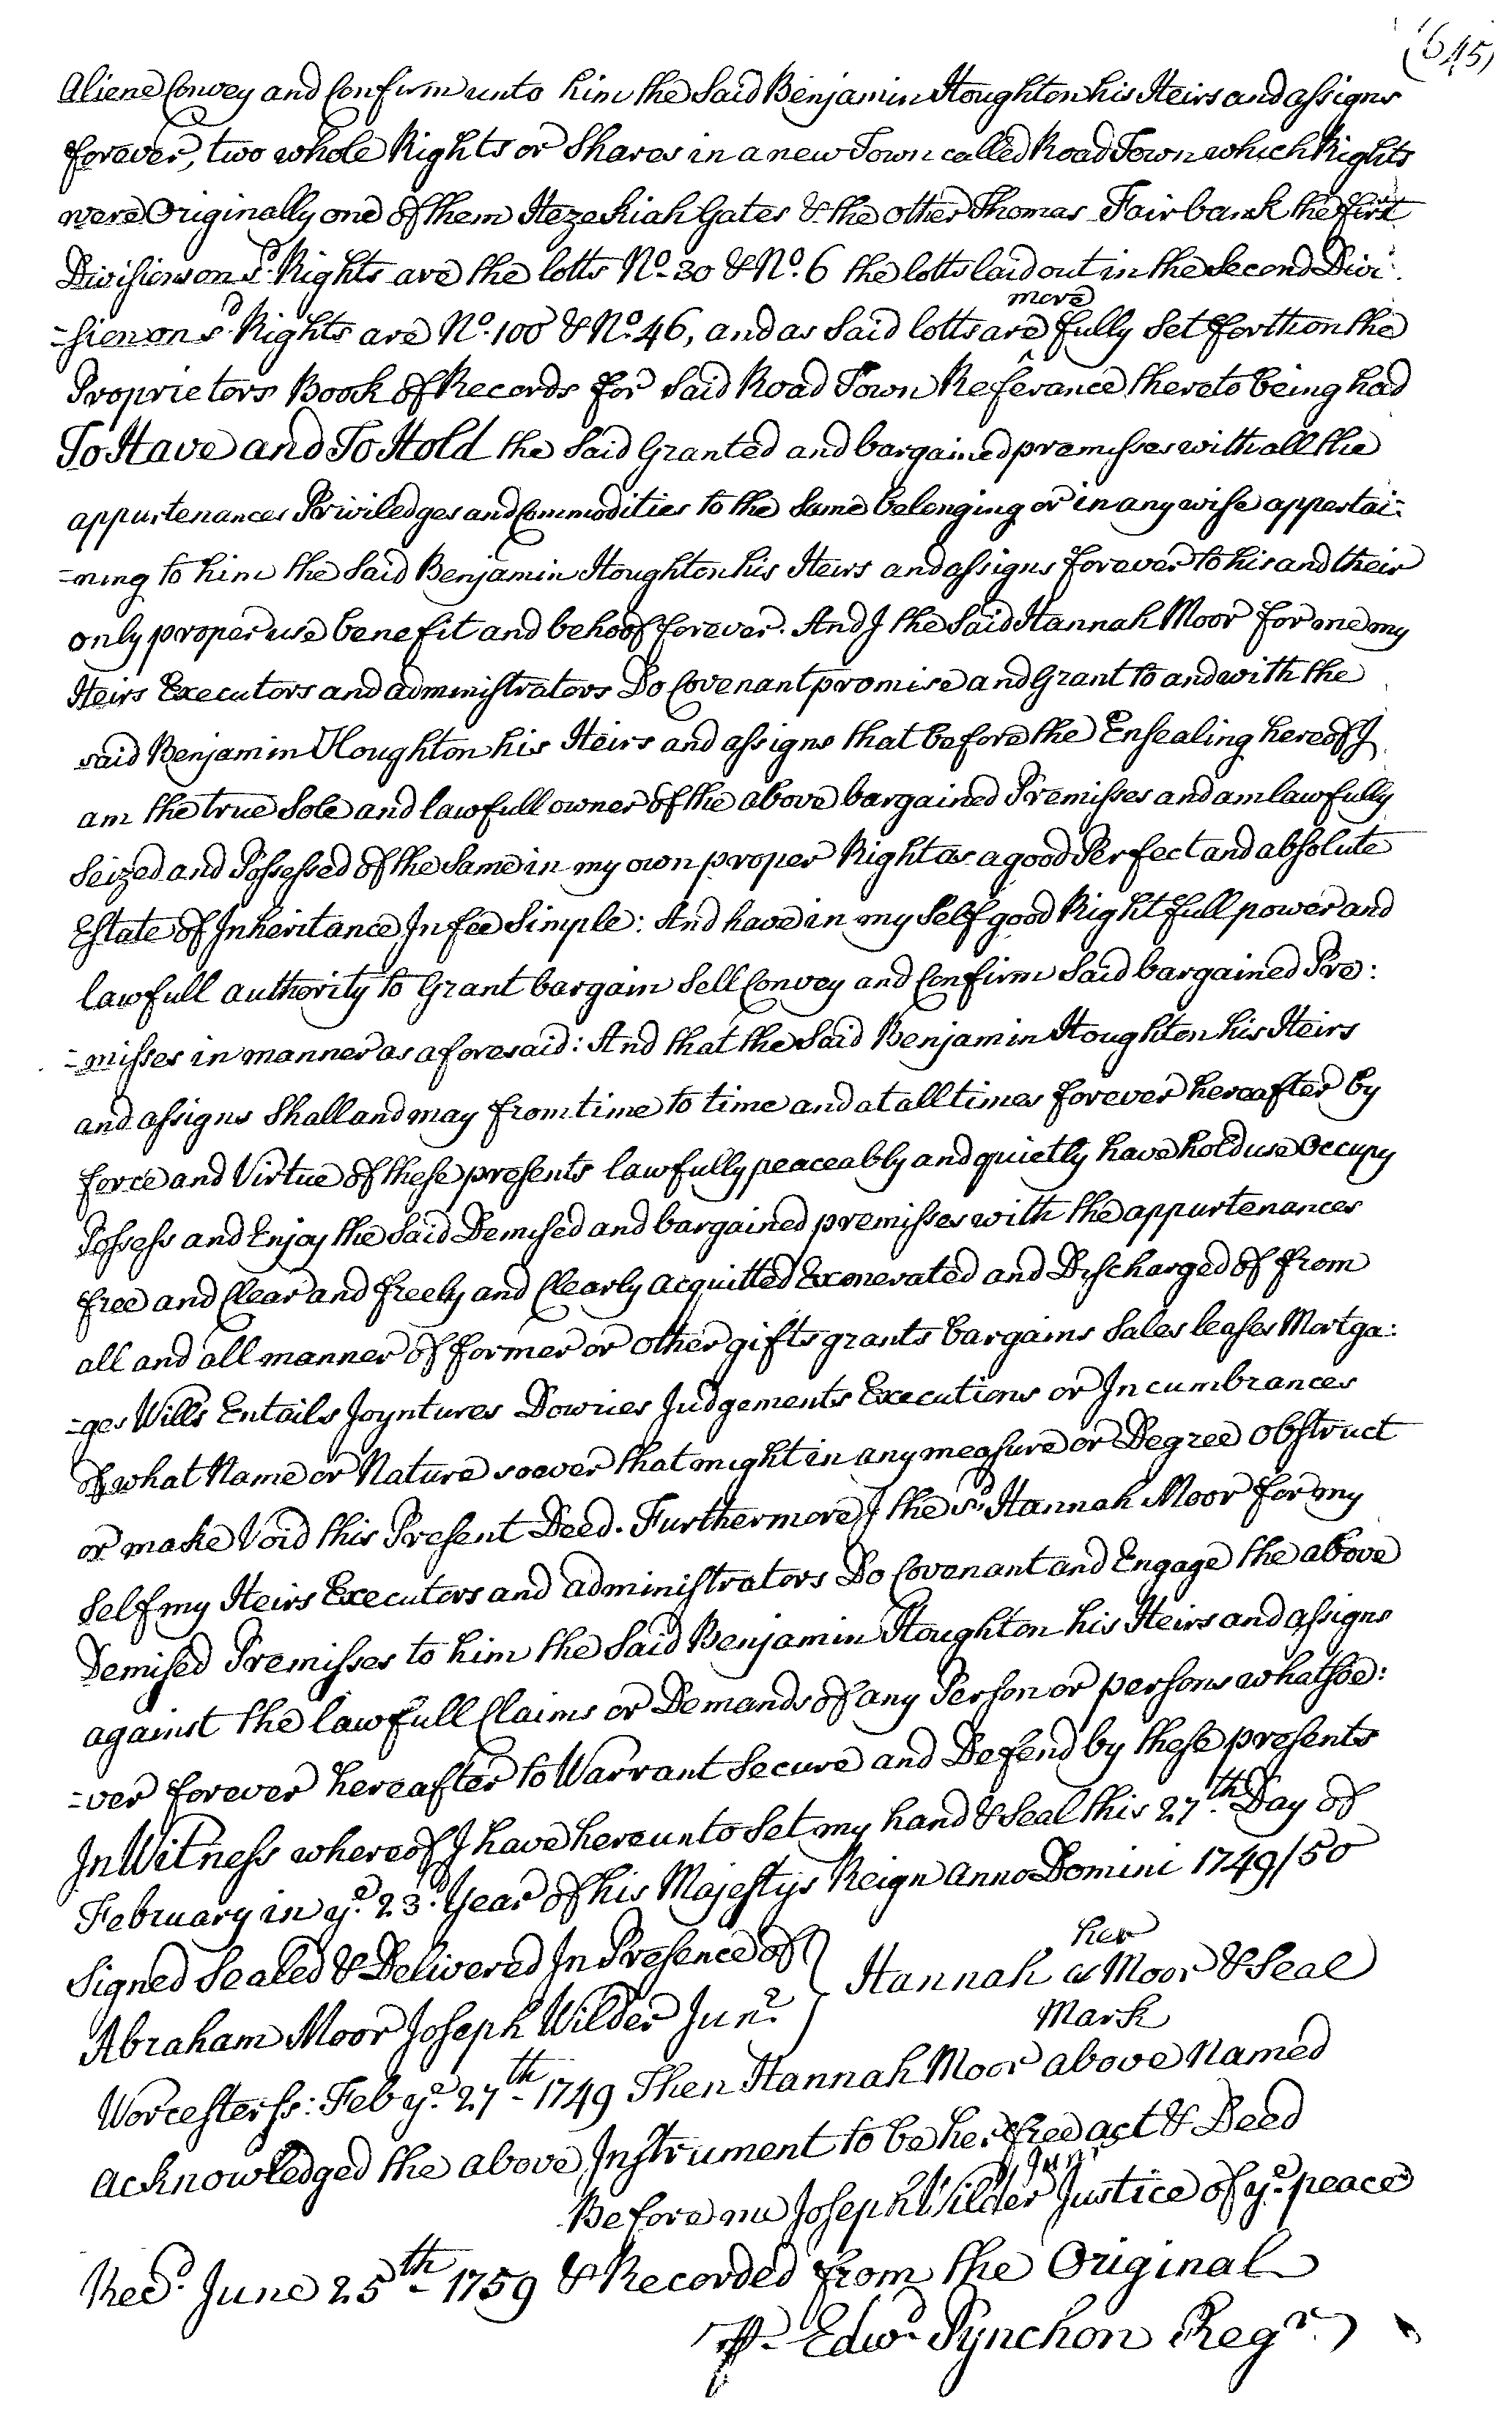 (645)
Aliene Convey and Confirm unto him the Said Benjamin Houghton his Heirs and assigns
forever, two whole Rights or Shares in a new Town called Road Town which Rights
were Originally one of them Hezekiah Gates & the other Thomas Fairbank the first
Division on sd. Rights are the lotts No. 30 & No. 6 the lotts laid out in the Second Divi-
-sion on sd. Rights are No. 100 & No. 46, and as Said lotts are more fully Set forth on the
Proprietors Book of Records for Said Road Town Referance thereto being had
To Have and To Hold the Said Granted and bargained premisses with all the
appurtenances Priviledges and Commodities to the Same belonging or in any wise appertai-
-ning to him the Said Benjamin Houghton his Heirs and assigns forever to his and their
only proper use benefit and behoof forever. And I the Said Hannah Moor for me my
Heirs Executors and administrators Do Covenant promise and Grant to and with the
said Benjamin Houghton his Heirs and assigns that before the Ensealing hereof I
am the true Sole and lawfull owner of the above bargained Premisses and am lawfully
Seized and Possessed of the Same in my own proper Right as a good Perfect and absolute
Estate of Inheritance In fee Simple: And have in my Self good Right full power and
lawfull authority to Grant bargain Sell Convey and Confirm Said bargained Pre:
-misses in manner as aforesaid: And that the Said Benjamin Houghton his Heirs
and assigns Shall and may from time to time and at all times forever hereafter by
force and Virtue of these presents lawfully peaceably and quietly have hold use Occupy
Possess and Enjoy the Said Demised and bargained premisses with the appurtenances
free and Clear and freely and Clearly acquitted Exonerated and Discharged of from
all and all manner of former or other gifts grants bargains Sales leases Mortga:
-ges Wills Entails Joyntures Dowries Judgements Executions or Incumbrances
of what Name or Nature soever that might in any measure or Degree obstruct
or make Void this Present Deed. Furthermore I the sd. Hannah Moor for my
Self my Heirs Executors and administrators Do Covenant and Engage the above
Demised Premisses to him the Said Benjamin Houghton his Heirs and assigns
against the lawfull Claims or Demands of any Person or persons whatsoe:
-ver forever hereafter to Warrant Secure and Defend by these presents
In Witness whereof I have hereunto Set my hand & Seal this 27th. Day of
February in ye. 23d. Year of his Majestys Reign Anno Domini 1749/50
Signed Sealed & Delivered In Presence of } her
Abraham Moor Joseph Wilder Junr. } Hannah Moor & Seal
Mark
Worcester ss: Feb ye. 27th- 1749 Then Hannah Moor above Named
acknowledged the above Instrument to be her free act & Deed
Before me Joseph Wilder Junr. Justice of ye. peace
Recd. June 25th- 1759 & Recorded from the Original
Edwd. Pynchon Regr.